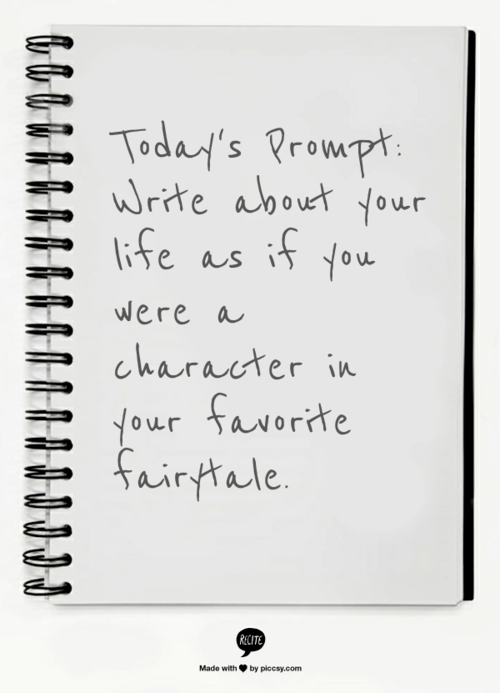 Today's Prompt:
Write about your
life as if you
were a
character in
your favorite
fairytale.
RECITE
Made with ♥ by piccsy.com